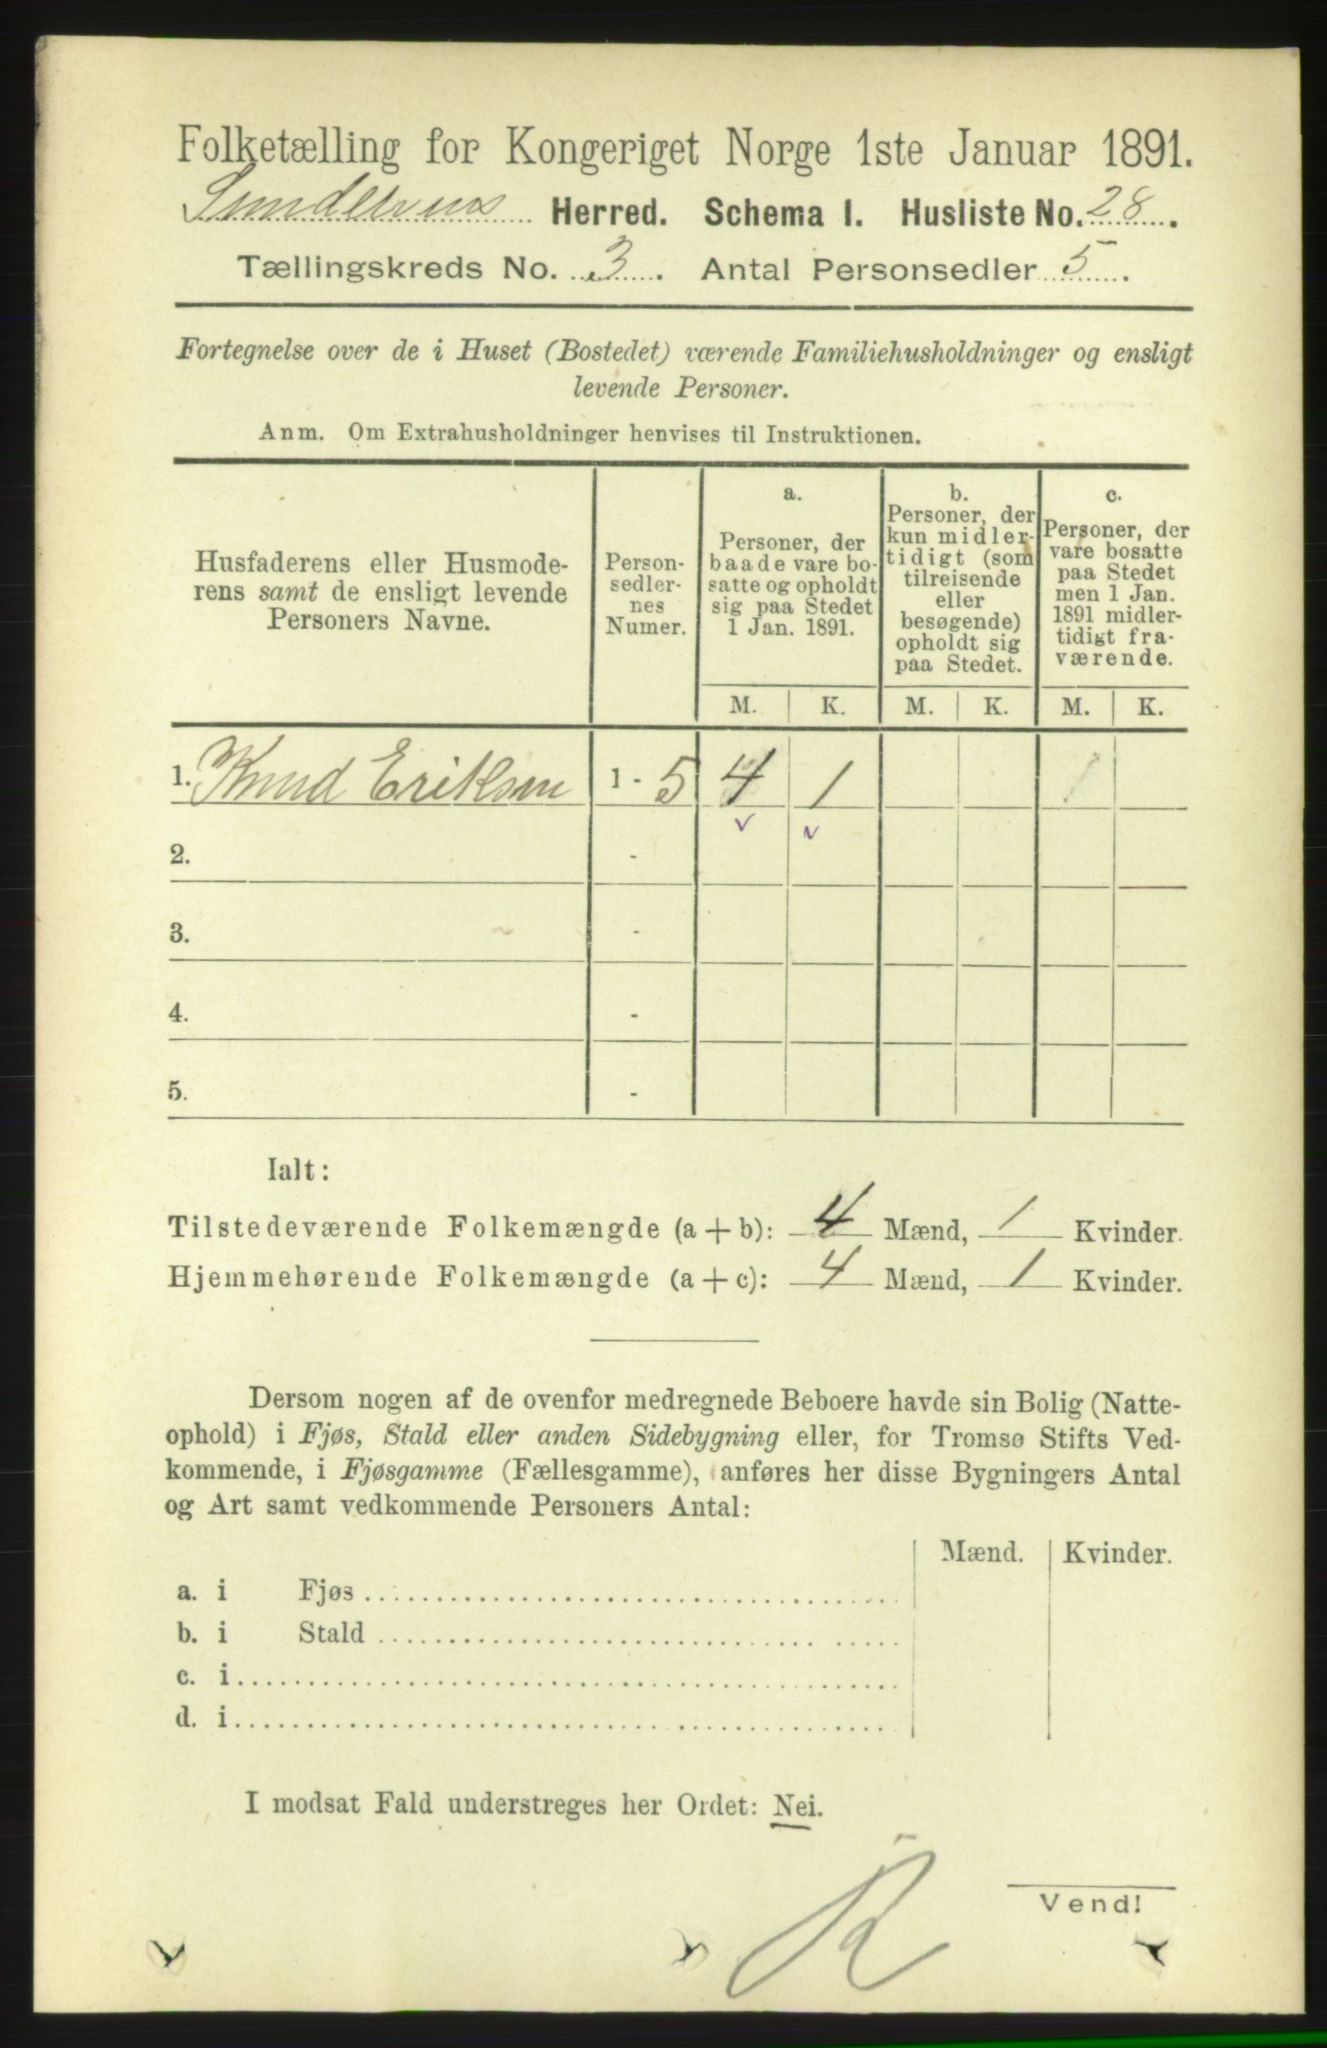 Folketælling for Kongeriget Norge 1ste Januar 1891.
Herred. Schema I. Husliste No. 28.
Tællingskreds No. 3. Antal Personsedler 5.
Fortegnelse over de i Huset (Bostedet) værende Familiehusholdninger og ensligt
levende Personer.
Anm. Om Extrahusholdninger henvises til Instruktionen.
Husfaderens eller Husmode-
rens samt de ensligt levende
Personers Navne.
Person-
sedler-
nes
Numer.
a.
Personer, der
baade vare bo-
satte og opholdt
sig paa Stedet
1 Jan. 1891.
b.
Personer, der
kun midler-
tidigt (som
tilreisende
eller
besøgende)
opholdt sig
paa Stedet.
c.
Personer, der
vare bosatte
paa Stedet
men 1 Jan.
1891 midler-
tidigt fra-
værende.
M. K. M. K. M. K.
1. Knud Eriksen 1 - 5 4 1 1
2. -
3. -
4. -
5. -
Ialt:
Tilstedeværende Folkemængde (a + b): 4 Mænd, 1 Kvinder.
Hjemmehørende Folkemængde (a + c): 4 Mænd, 1 Kvinder.
Dersom nogen af de ovenfor medregnede Beboere havde sin Bolig (Natte-
ophold) i Fjøs, Stald eller anden Sidebygning eller, for Tromsø Stifts Ved-
kommende, i Fjøsgamme (Fællesgamme), anføres her disse Bygningers Antal
og Art samt vedkommende Personers Antal:
Mænd. Kvinder.
a. i Fjøs
b. i Stald
c. i
d. i
I modsat Fald understreges her Ordet: Nei.
R
Vend!